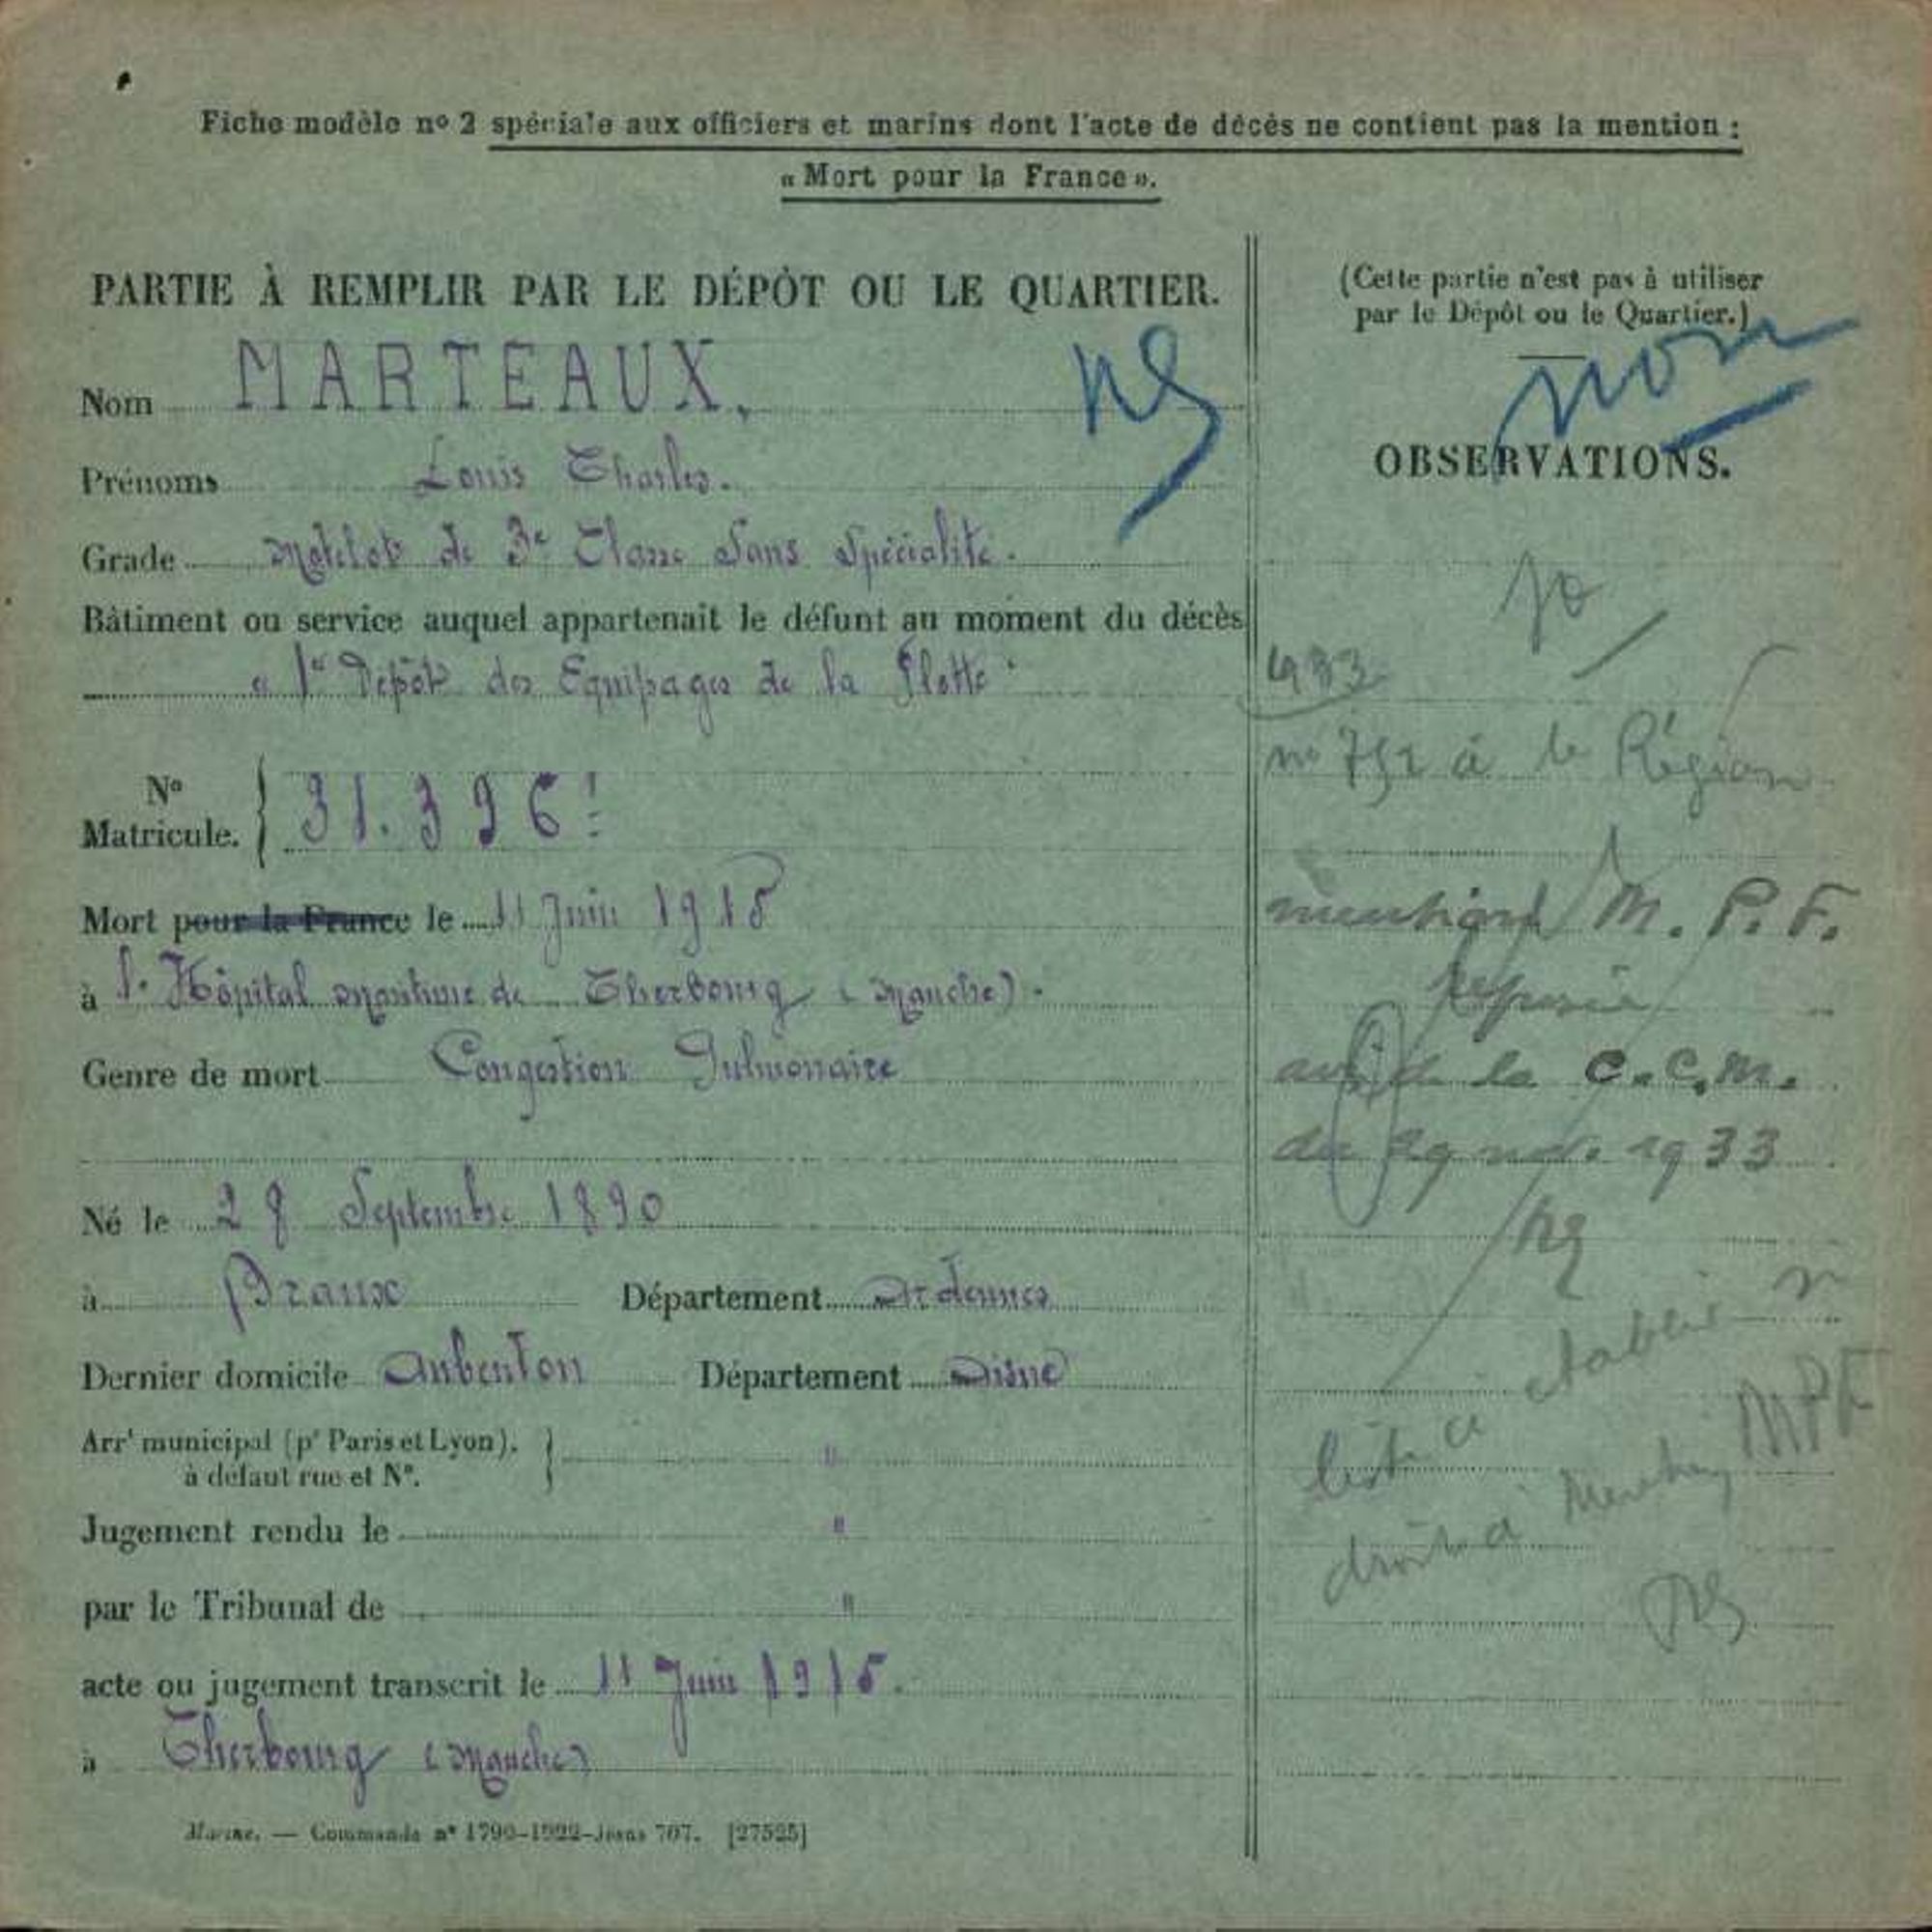 Fiche modèle nº 2 spéciale aux officiers et marins dont l'acte de décès ne contient pas la mention :
« Mort pour la France ».
PARTIE À REMPLIR PAR LE DÉPÔT OU LE QUARTIER.
Nom MARTEAUX.
Prénoms Louis Charles.
Grade Matelot de 3e Classe Sans Spécialité.
Bâtiment ou service auquel appartenait le défunt au moment du décès
« 1er Dépôt des Equipages de la Flotte »
Nº
Matricule. 31.396
Mort pour la France le 11 Juin 1915
à l'Hôpital maritime de Cherbourg (Manche).
Genre de mort Congestion Pulmonaire
Né le 28 Septembre 1890
à Braux Département Ardennes
Dernier domicile Aubenton Département Aisne
Arrt municipal (pr Paris et Lyon),
à défaut rue et Nº.
"
Jugement rendu le "
par le Tribunal de "
acte ou jugement transcrit le 11 Juin 1915.
à Cherbourg (Manche)
Marine. — Commande nº 1790-1922-Jésus 707. [27525]
(Cette partie n'est pas à utiliser
par le Dépôt ou le Quartier.)
non
OBSERVATIONS.
933
nº 752 à la Région
mention M. P. F.
avis de la C.C.M.
du 29 nov. 1933
à établir
droit à Mention MPF